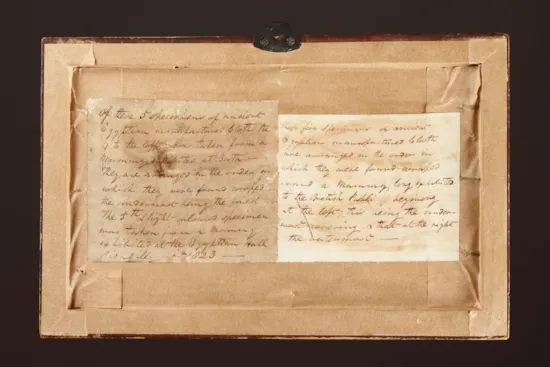 of these 5 specimens of ancient
Egyptian manufactured Cloth the
4 to the left were taken from a
Mummy at
They are arranged in the order in
which they were found wrapped
the undermost being the finest
The 5th & light coloured specimen
was taken from a Mummy
exhibited at the Egyptian Hall
1823
five specimens of ancient
Egyptian manufactured Cloth
are arranged in the order in
which they were found wrapped
round a Mummy, long exhibited
to the British Public, beginning
at the left this being the under
most covering & that at the right
the outermost